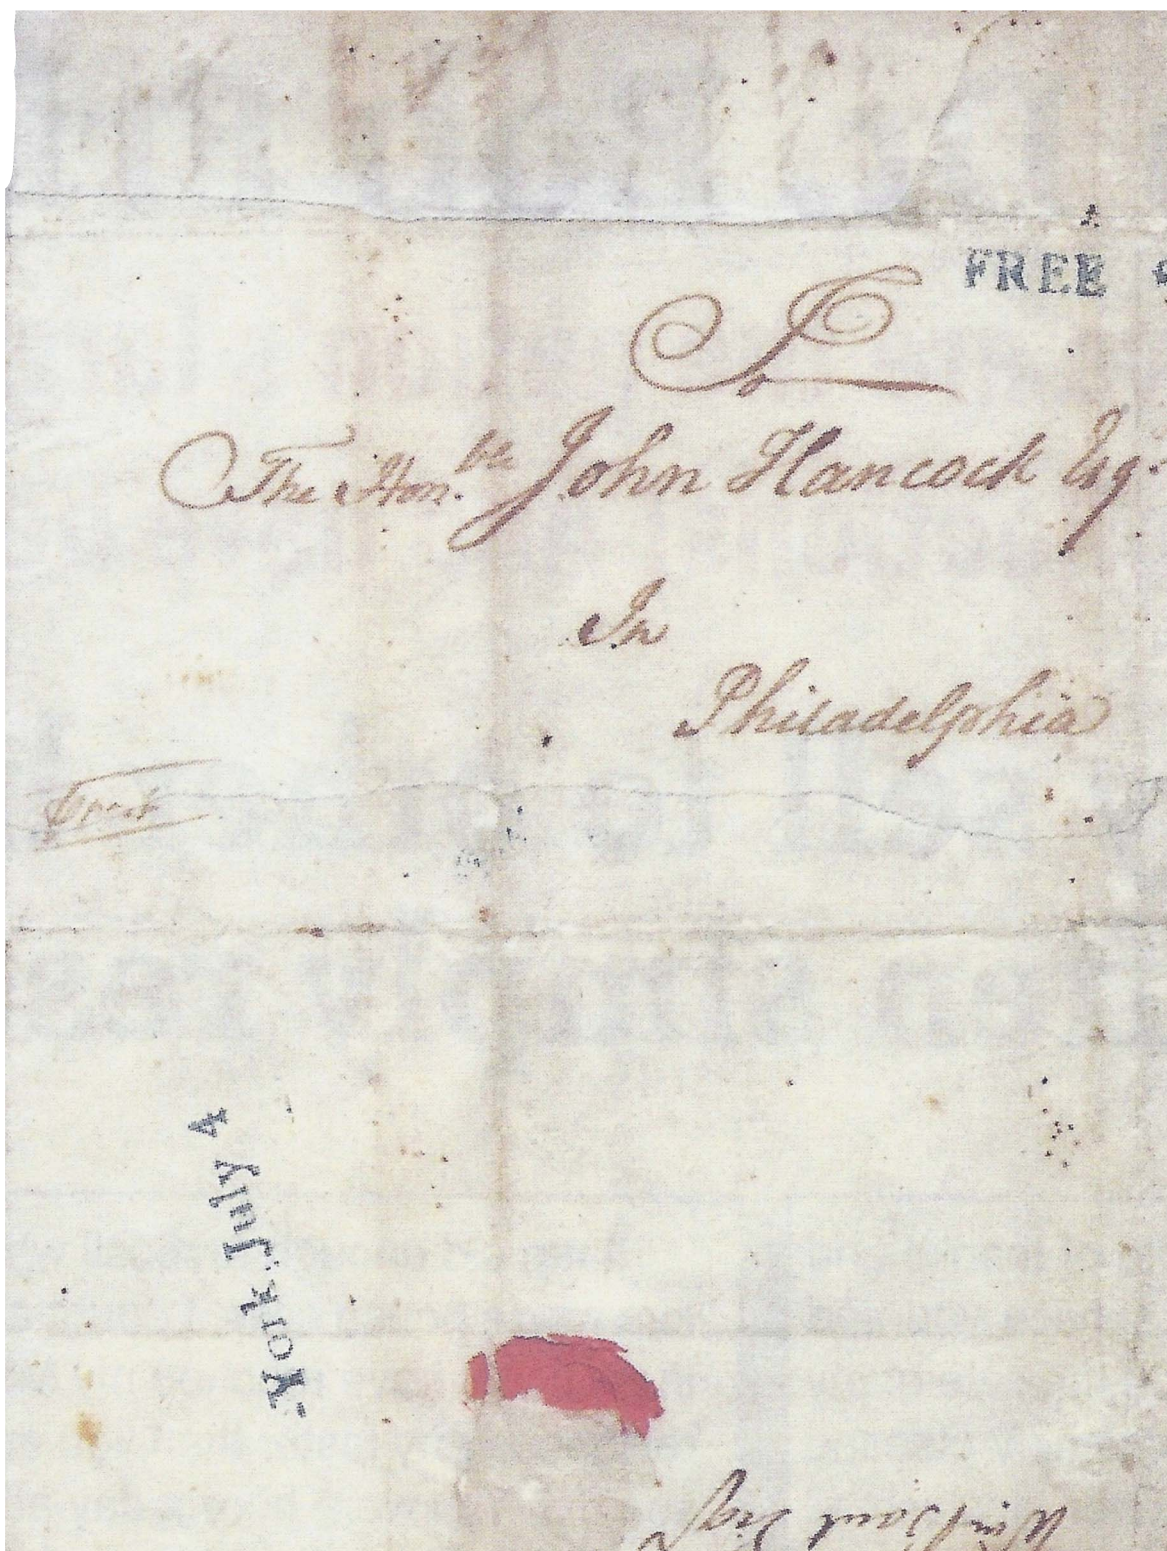 FREE
To
The Hon.ble John Hancock Esq.
In
Philadelphia
York. July 4